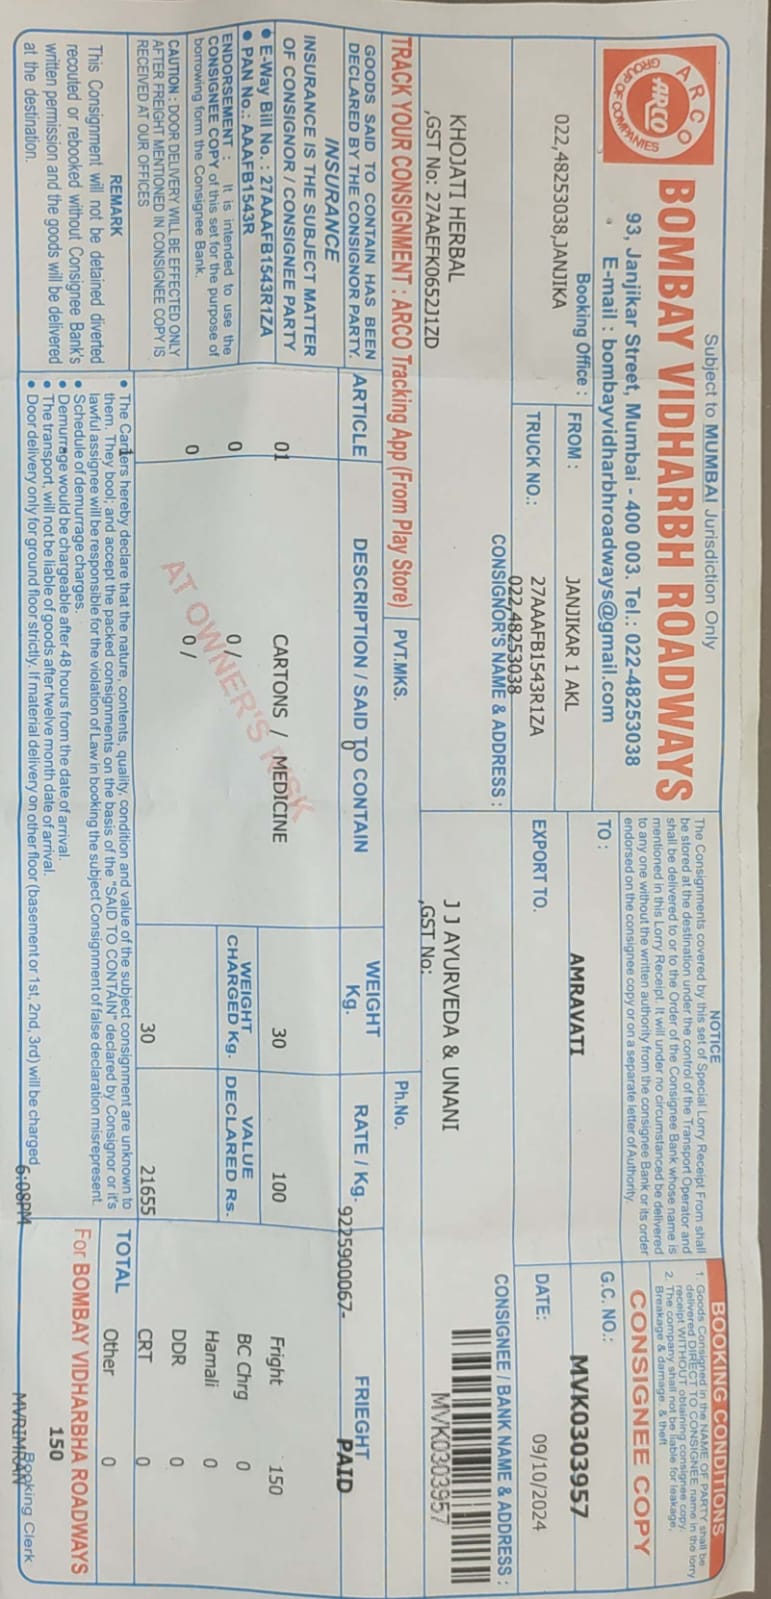 Subject to MUMBAI Jurisdiction Only
ARCO
GROUP OF COMPANIES
ARCO
BOMBAY VIDHARBH ROADWAYS
93, Janjikar Street, Mumbai - 400 003. Tel.: 022-48253038
E-mail : bombayvidharbhroadways@gmail.com
NOTICE
The Consignments covered by this set of Special Lorry Receipt From shall
be stored at the destination under the control of the Transport Operator and
shall be delivered to or to the Order of the Consignee Bank whose name is
mentioned in this Lorry Receipt. It will under no circumstanced be delivered
to any one without the written authority from the consignee Bank or its order
endorsed on the consignee copy or on a separate letter of Authority.
BOOKING CONDITIONS
1. Goods Consigned in the NAME OF PARTY shall be
delivered DIRECT TO CONSIGNEE name in the lorry
receipt WITHOUT obtaining consignee copy.
2. The company shall not be liable for leakage,
Breakage & damage. & theft
CONSIGNEE COPY
Booking Office :
022,48253038,JANJIKA
FROM :
JANJIKAR 1 AKL
TO :
AMRAVATI
G.C. NO.:
MVK0303957
TRUCK NO.:
27AAAFB1543R1ZA
022,48253038
EXPORT TO.
DATE:
09/10/2024
CONSIGNOR'S NAME & ADDRESS :
CONSIGNEE / BANK NAME & ADDRESS :
KHOJATI HERBAL
,GST No: 27AAEFK0652J1ZD
J J AYURVEDA & UNANI
,GST No:
MVK0303957
TRACK YOUR CONSIGNMENT : ARCO Tracking App (From Play Store)
PVT.MKS.
Ph.No.
9225900067-
GOODS SAID TO CONTAIN HAS BEEN
DECLARED BY THE CONSIGNOR PARTY.
INSURANCE
INSURANCE IS THE SUBJECT MATTER
OF CONSIGNOR / CONSIGNEE PARTY
• E-Way Bill No. : 27AAAFB1543R1ZA
• PAN No.: AAAFB1543R
ENDORSEMENT : It is intended to use the
CONSIGNEE COPY of this set for the purpose of
borrowing form the Consignee Bank.
CAUTION : DOOR DELIVERY WILL BE EFFECTED ONLY
AFTER FREIGHT MENTIONED IN CONSIGNEE COPY IS
RECEIVED AT OUR OFFICES
REMARK
This Consignment will not be detained diverted
recouted or rebooked without Consignee Bank's
written permission and the goods will be delivered
at the destination.
ARTICLE
DESCRIPTION / SAID TO CONTAIN
0
WEIGHT
Kg.
RATE / Kg.
FRIEGHT
PAID
01
CARTONS / MEDICINE
30
100
Fright 150
0
0 /
WEIGHT
CHARGED Kg.
VALUE
DECLARED Rs.
BC Chrg 0
Hamali 0
0
0 /
DDR 0
AT OWNER'S RISK
30
21655
CRT 0
1
• The Carriers hereby declare that the nature, contents, quality, condition and value of the subject consignment are unknown to
them. They bool; and accept the packed consignments on the basis of the "SAID TO CONTAIN" declared by Consignor or it's
lawful assignee will be responsible for the violation of Law in booking the subject Consignment of false declaration misrepresent.
• Schedule of demurrage charges.
• Demurrage would be chargeable after 48 hours from the date of arrival.
• The transport, will not be liable of goods after twelve month date of arrival.
• Door delivery only for ground floor strictly. If material delivery on other floor (basement or 1st, 2nd, 3rd) will be charged
TOTAL
Other 0
For BOMBAY VIDHARBHA ROADWAYS
150
6:08PM
MVRIMRAN
Booking Clerk